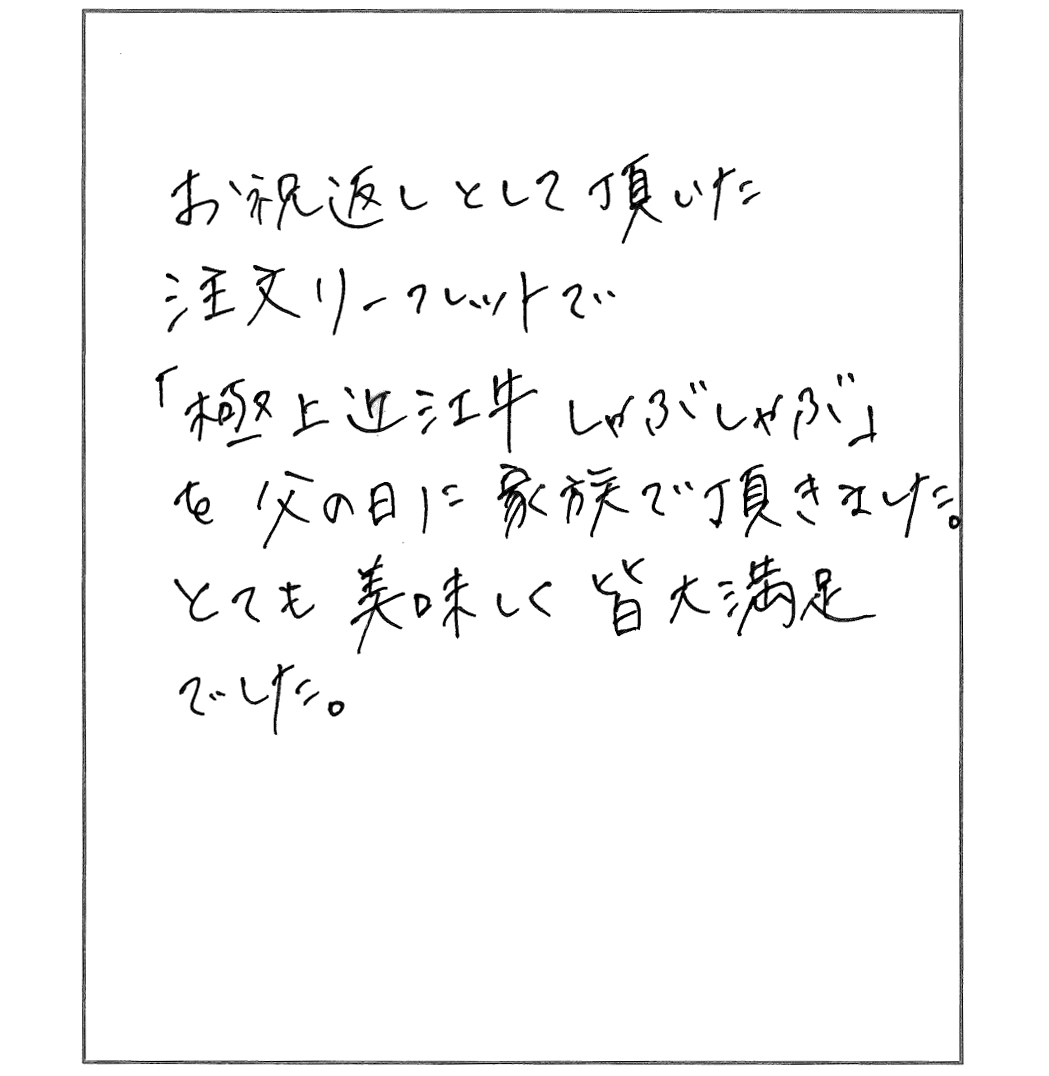 お祝返しとして頂いた
注文リーフレットで
「極上近江牛 しゃぶしゃぶ」
を 父の日に 家族で頂きました。
とても 美味しく 皆大満足
でした。